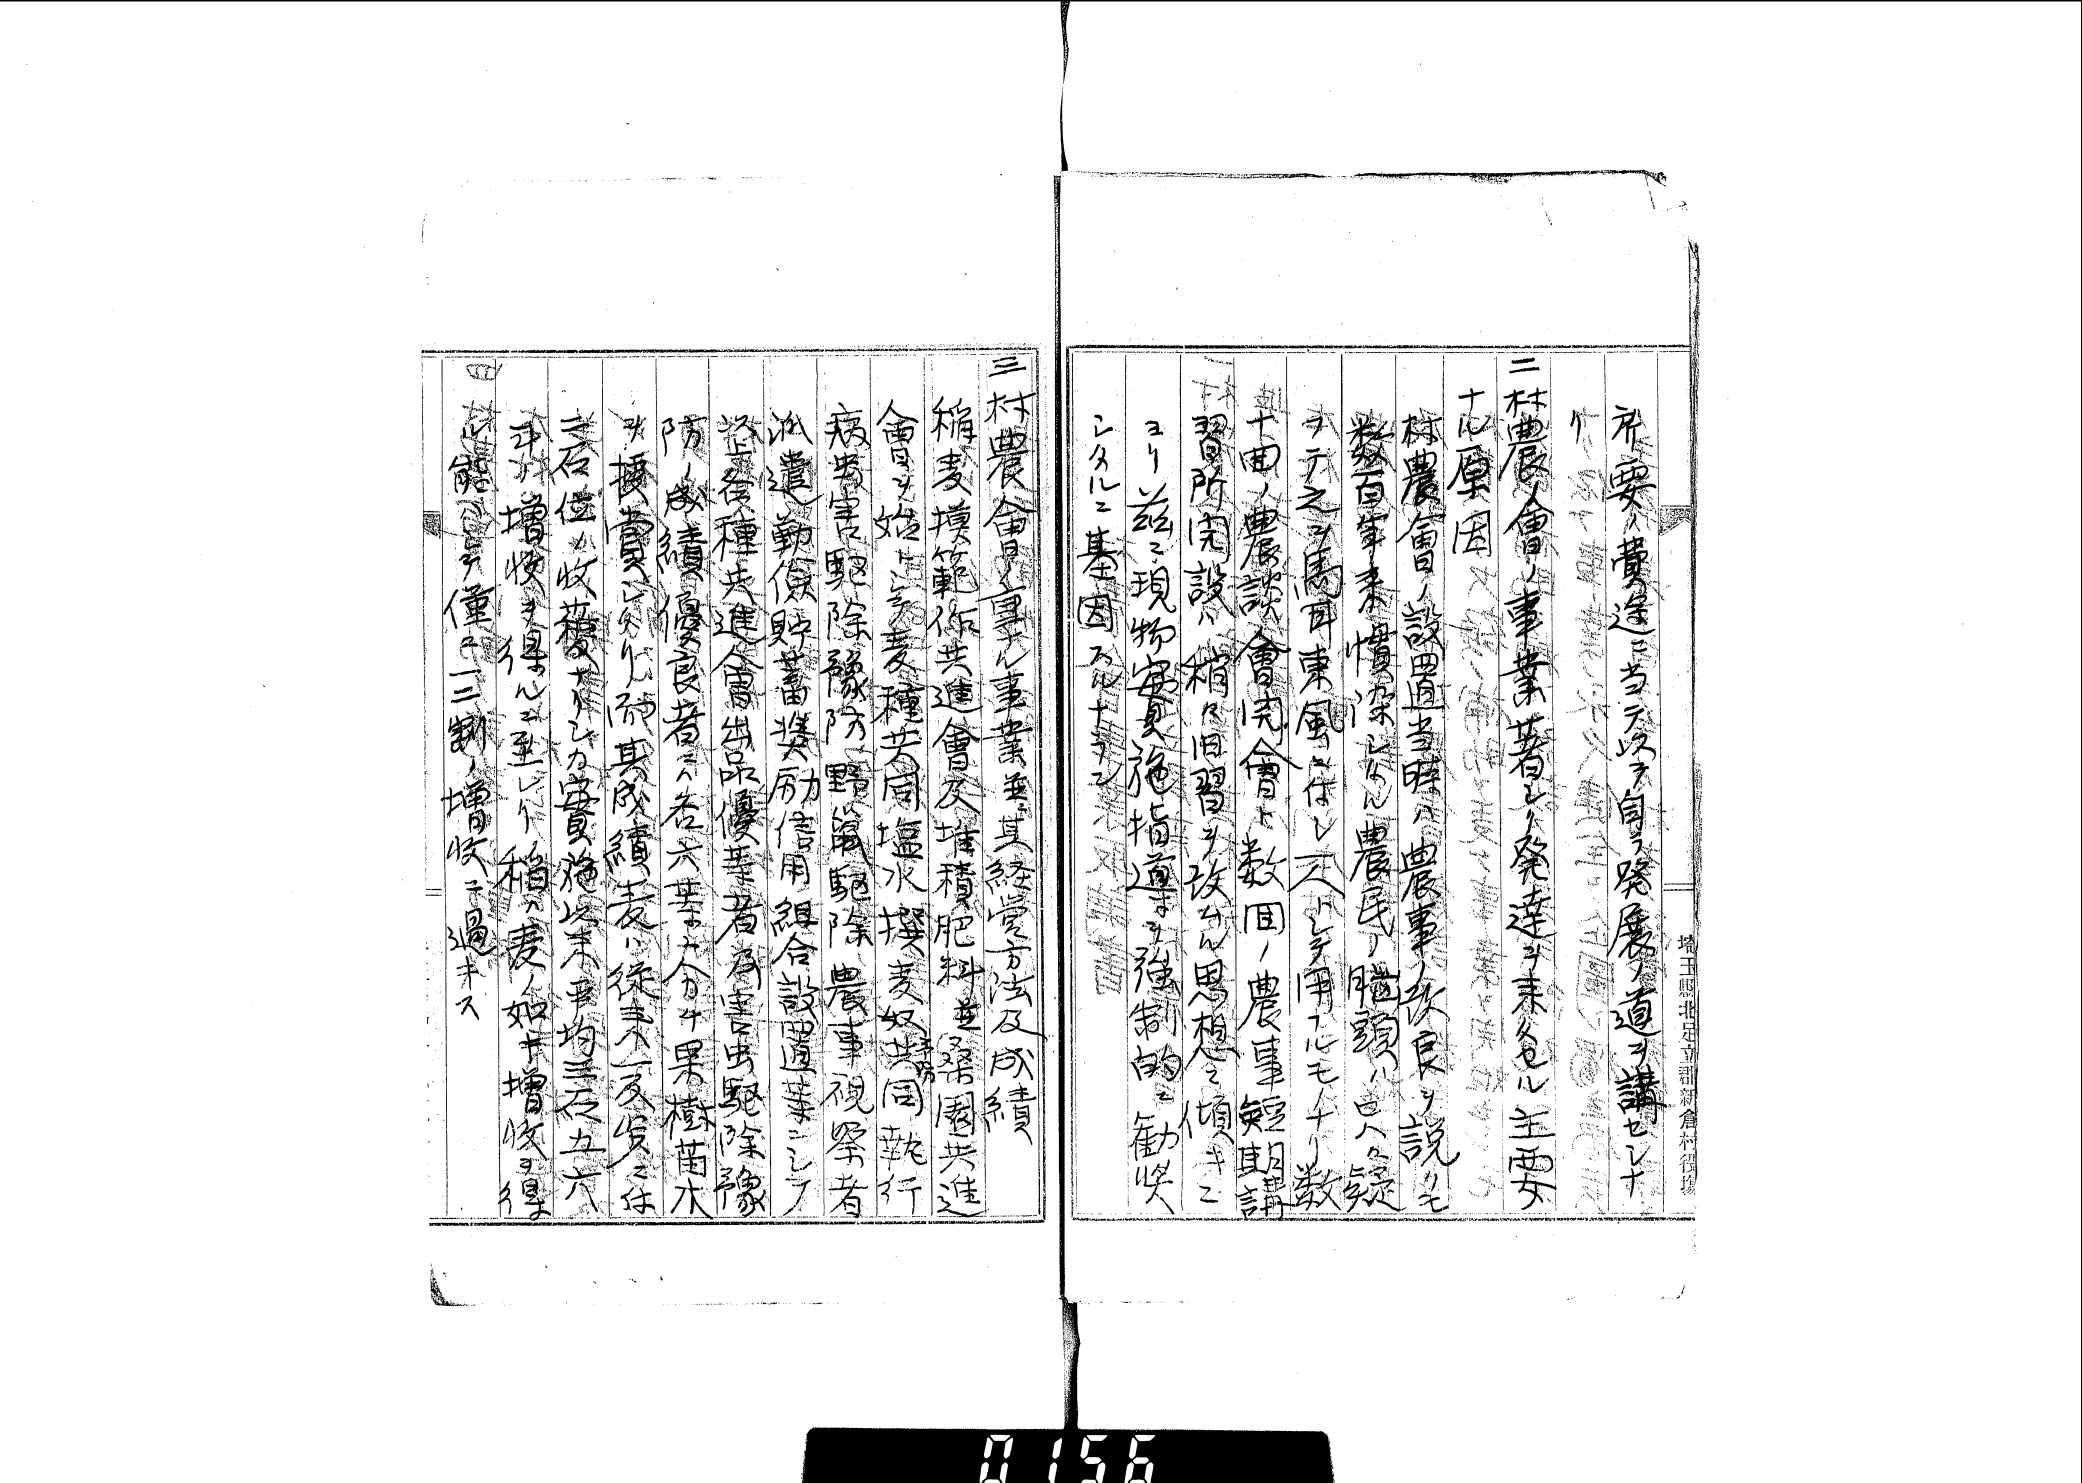 所要ノ費途ニ当テ以テ自ラ発展ノ道ヲ講セシナ
リ
二 村農會ノ事業著シク発達ヲ来タセル主要
ナル原因
村農會ノ設置当時ハ農事ノ改良ヲ説クモ
数百年来慣染シタル農民ノ脳頭ハ只々疑
ヲテ之ヲ馬耳東風ニ付シ一人トシテ用フルモノナリ数
十回ノ農談會開會ト数回ノ農事短期講
習所開設ハ稍々旧習ヲ改ムル思想ニ傾キニ
ヨリ茲ニ現物実施指導ヲ強制的ニ勧奨
シタルニ基因スルナラン
埼玉縣北足立郡新倉村役場
三 村農會ノ重ナル事業並ニ其経営方法及成績
稲麦模範作共進會及堆積肥料並桑園共進
會ヲ始トシテ麦種共同塩水撰麦奴豫防共同執行
病虫害駆除豫防野鼠駆除農事視察者
派遣勤儉貯蓄奨励信用組合設置等ニシテ
以上各種共進會出品優等者及害虫駆除豫
防ノ成績優良者ニハ各六等ニ分チ果樹苗木
ヲ授賞シタリ而其成績麦ハ従来一反歩ニ付
二石位ノ收穫ナリシカ実施以来平均三石五六
斗ノ増收ヲ得ルニ至レリ稲ハ麦ノ如キ増收ヲ得
ル能ハスシテ僅ニ一二割ノ増收ニ過キス
0156